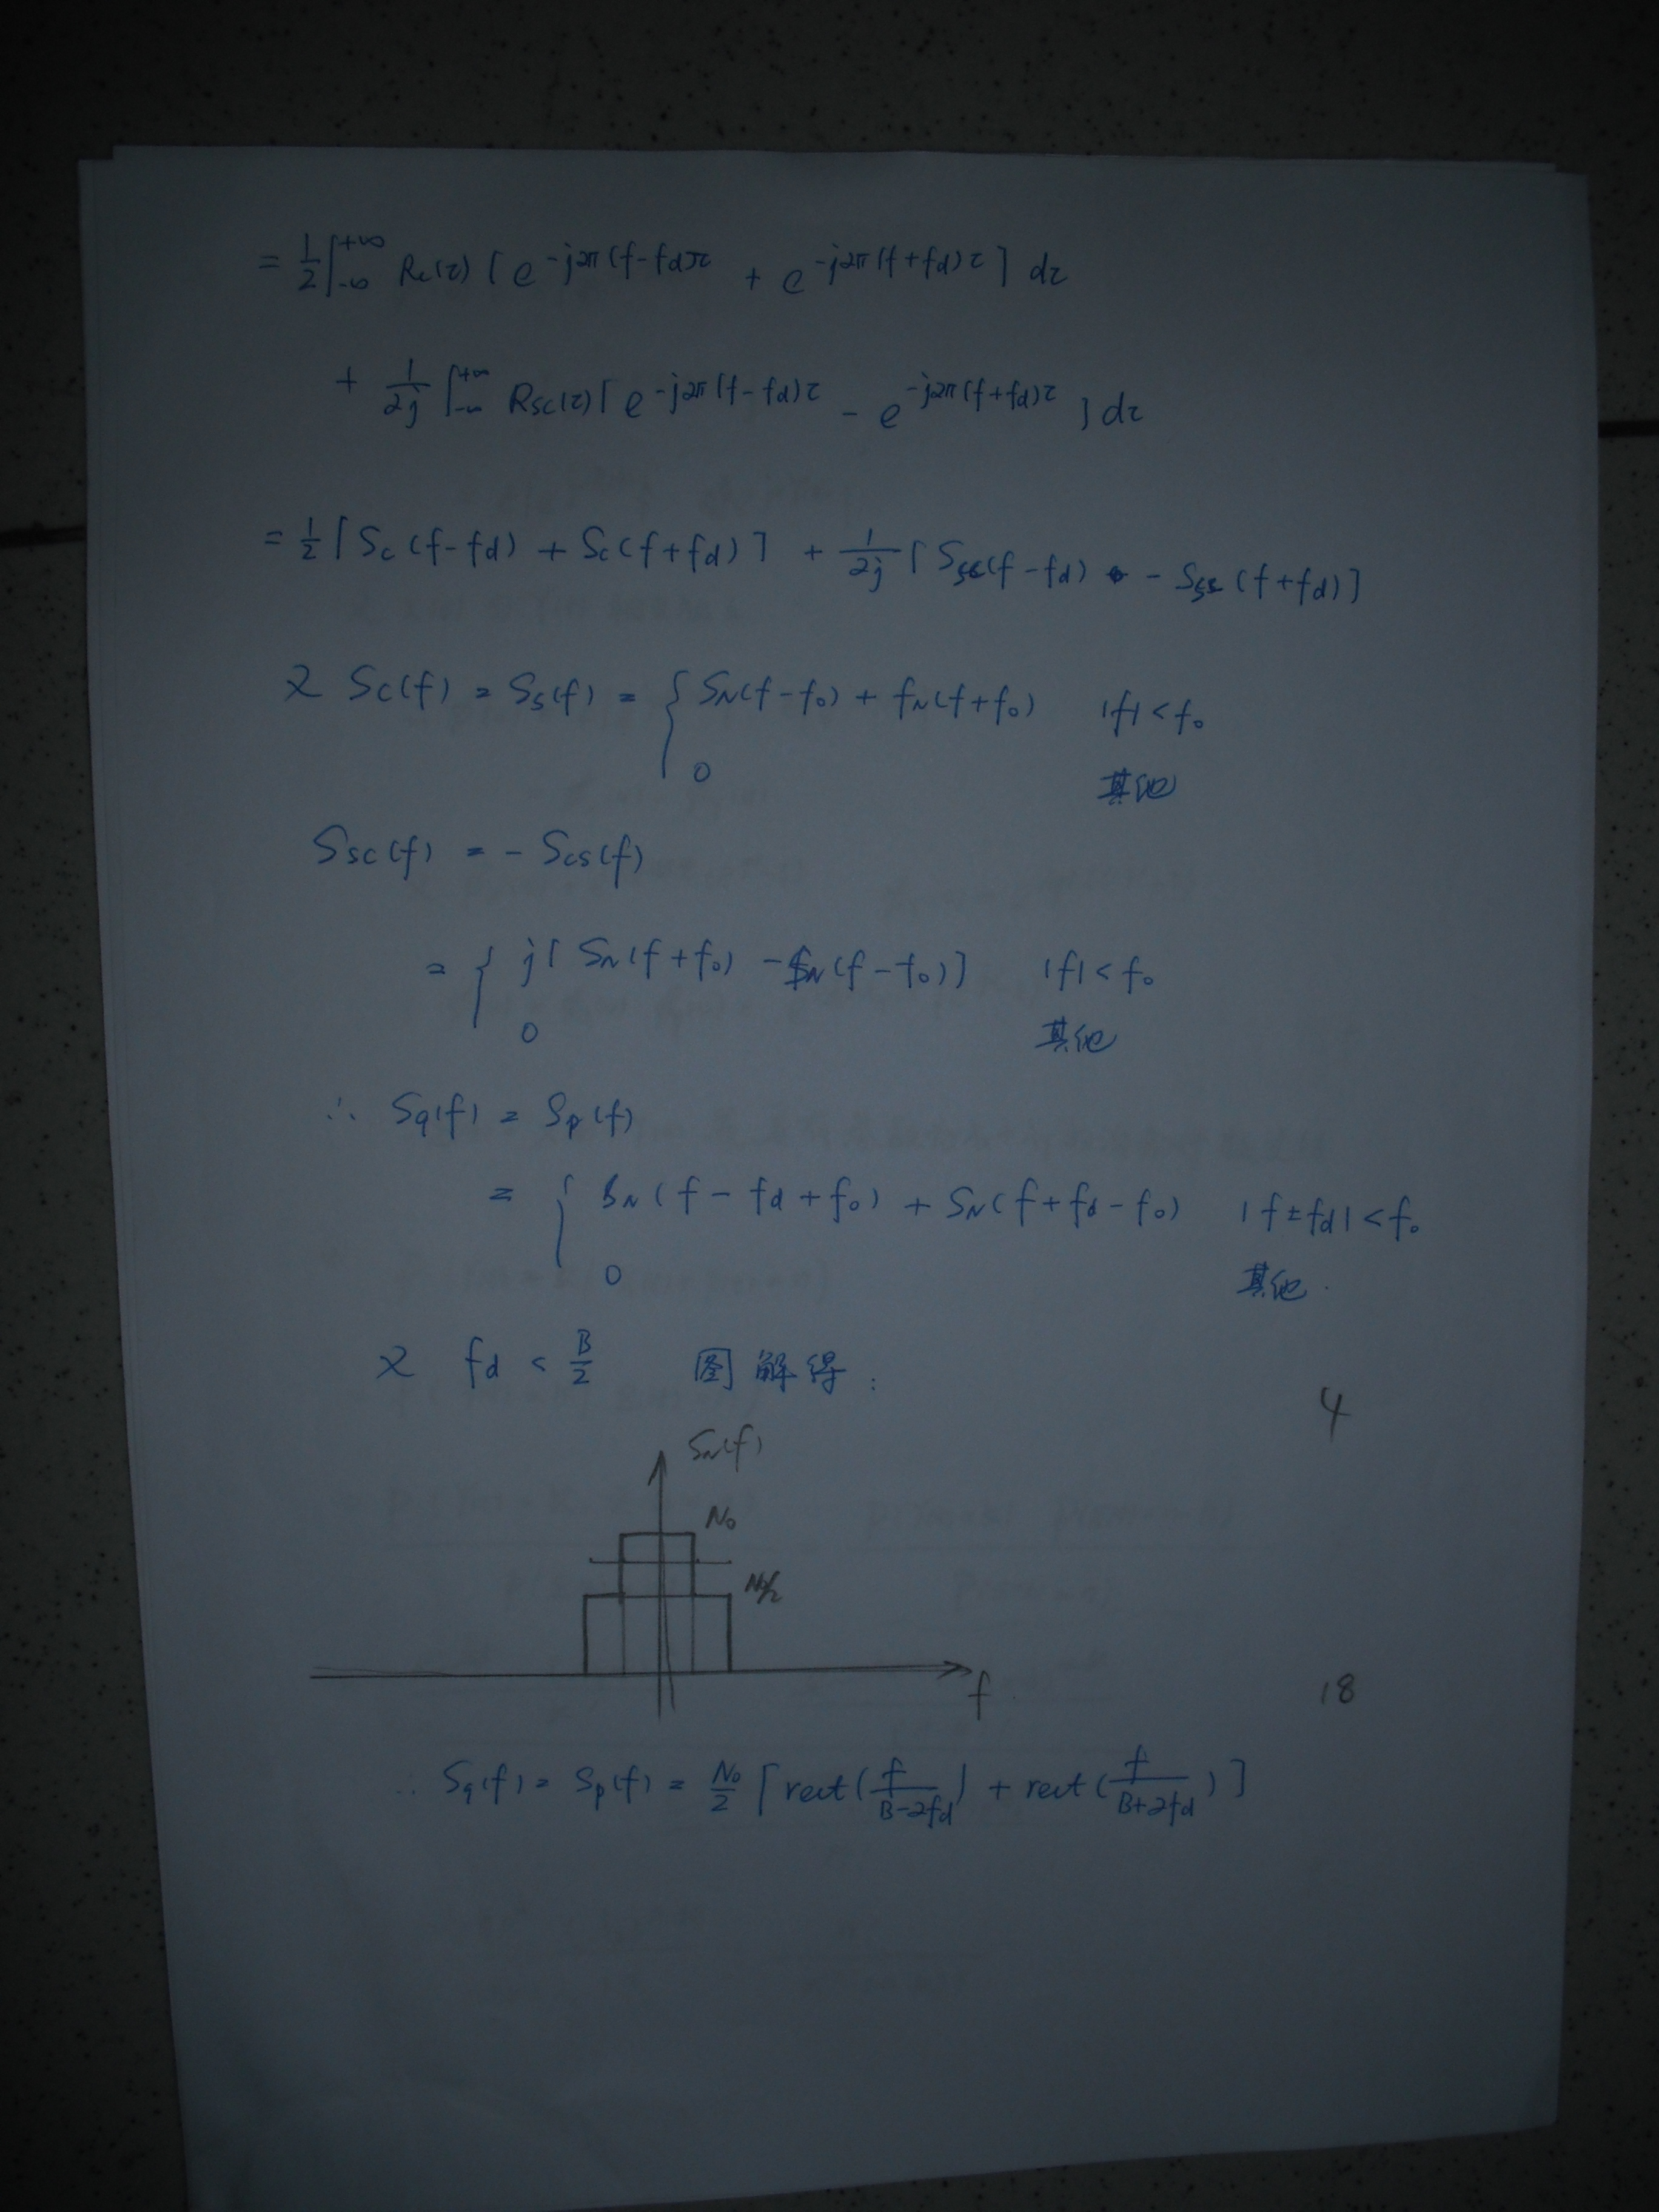 = 1/2 ∫_{-∞}^{+∞} Rc(τ) [ e^{-j2π(f-fd)τ} + e^{-j2π(f+fd)τ} ] dτ
+ 1/2j ∫_{-∞}^{+∞} Rsc(τ) [ e^{-j2π(f-fd)τ} - e^{-j2π(f+fd)τ} ] dτ
= 1/2 [ Sc(f-fd) + Sc(f+fd) ] + 1/2j [ Ssc(f-fd) - Ssc(f+fd) ]
又 Sc(f) = Ss(f) = { SN(f-f0) + fN(f+f0) |f| < f0
0 其他
Ssc(f) = - Scs(f)
= { j[ SN(f+f0) - SN(f-f0) ] |f| < f0
0 其他
∴ Sq(f) = Sp(f)
= { SN(f-fd+f0) + SN(f+fd-f0) |f±fd| < f0
0 其他.
又 fd < B/2 图解得:
4
SN(f)
N0
N0/2
f
18
∴ Sq(f) = Sp(f) = N0/2 [ rect(f/(B-2fd)) + rect(f/(B+2fd)) ]